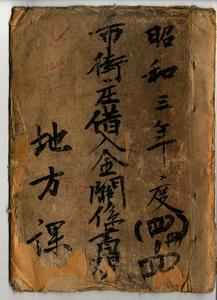 昭和三年度(四冊ノ四)
市街庄借入金關係書類
地方課